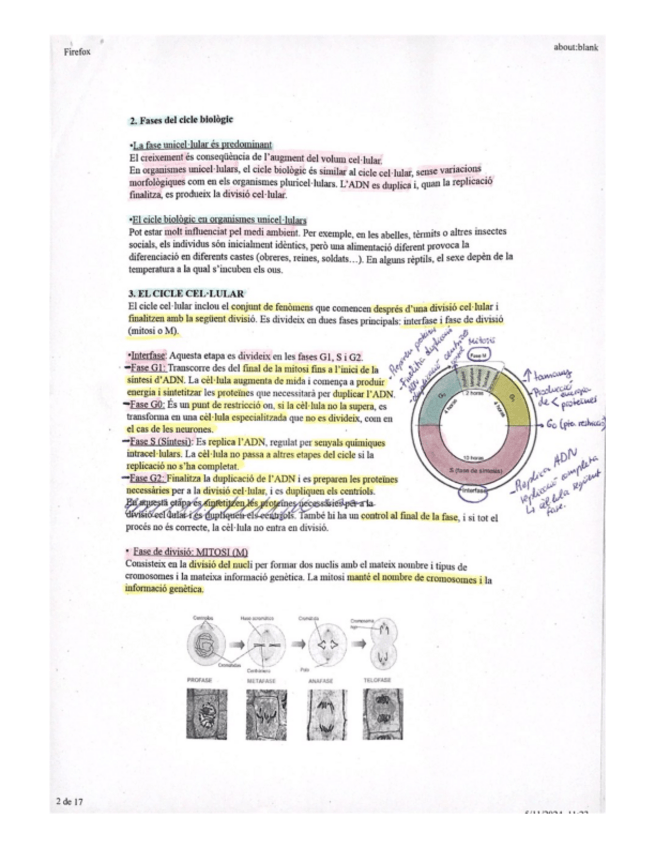 Firefox
about:blank
2. Fases del cicle biològic
•La fase unicel·lular és predominant
El creixement és conseqüència de l'augment del volum cel·lular.
En organismes unicel·lulars, el cicle biològic és similar al cicle cel·lular, sense variacions
morfològiques com en els organismes pluricel·lulars. L'ADN es duplica i, quan la replicació
finalitza, es produeix la divisió cel·lular.
•El cicle biològic en organismes unicel·lulars
Pot estar molt influenciat pel medi ambient. Per exemple, en les abelles, tèrmits o altres insectes
socials, els individus són inicialment idèntics, però una alimentació diferent provoca la
diferenciació en diferents castes (obreres, reines, soldats…). En alguns rèptils, el sexe depèn de la
temperatura a la qual s'incuben els ous.
3. EL CICLE CEL·LULAR
El cicle cel·lular inclou el conjunt de fenòmens que comencen després d'una divisió cel·lular i
finalitzen amb la següent divisió. Es divideix en dues fases principals: interfase i fase de divisió
(mitosi o M).
•Interfase: Aquesta etapa es divideix en les fases G1, S i G2.
Fase G1: Transcorre des del final de la mitosi fins a l'inici de la
síntesi d'ADN. La cèl·lula augmenta de mida i comença a produir
energia i sintetitzar les proteïnes que necessitarà per duplicar l'ADN.
Fase G0: És un punt de restricció on, si la cèl·lula no la supera, es
transforma en una cèl·lula especialitzada que no es divideix, com en
el cas de les neurones.
Fase S (Síntesi): Es replica l'ADN, regulat per senyals químiques
intracel·lulars. La cèl·lula no passa a altres etapes del cicle si la
replicació no s'ha completat.
Fase G2: Finalitza la duplicació de l'ADN i es preparen les proteïnes
necessàries per a la divisió cel·lular, i es dupliquen els centríols.
En aquesta etapa es sintetitzen les proteïnes necessàries per a la
divisió cel·lular i es dupliquen els centríols. També hi ha un control al final de la fase, i si tot el
procés no és correcte, la cèl·lula no entra en divisió.
Mitosis
Fase M
G₂
G₁
1,2 horas
4 horas
4 horas
10 horas
S (fase de síntesis)
Interfase
↑ tamany
Producció
de < energia
proteïnes
G₀ (pto. restricció)
Replica ADN
replicació completa
↳ cèl·lula següent
fase.
• Fase de divisió: MITOSI (M)
Consisteix en la divisió del nucli per formar dos nuclis amb el mateix nombre i tipus de
cromosomes i la mateixa informació genètica. La mitosi manté el nombre de cromosomes i la
informació genètica.
Centríolos
Huso acromático
Cromátida
Cromosoma
Cromosomas
Centrómero
Polo
PROFASE
METAFASE
ANAFASE
TELOFASE
2 de 17